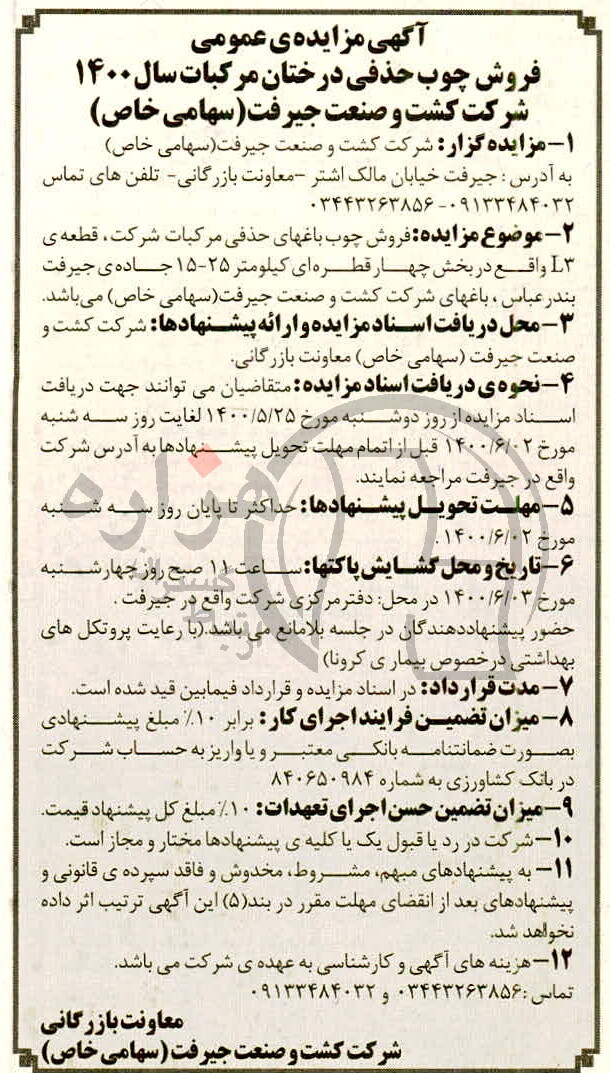 آگهی مزایده‌ی عمومی
فروش چوب حذفی درختان مرکبات سال ۱۴۰۰
شرکت کشت و صنعت جیرفت(سهامی خاص)
۱- مزایده گزار: شرکت کشت و صنعت جیرفت(سهامی خاص)
به آدرس : جیرفت خیابان مالک اشتر -معاونت بازرگانی- تلفن های تماس
۰۹۱۳۳۴۸۴۰۳۲- ۰۳۴۴۳۲۶۳۸۵۶
۲- موضوع مزایده: فروش چوب باغهای حذفی مرکبات شرکت، قطعه‌ی
L۳ واقع در بخش چهار قطره‌ای کیلومتر ۲۵-۱۵ جاده‌ی جیرفت
بندرعباس ، باغهای شرکت کشت و صنعت جیرفت(سهامی خاص) می‌باشد.
۳- محل دریافت اسناد مزایده و ارائه پیشنهادها: شرکت کشت و
صنعت جیرفت (سهامی خاص) معاونت بازرگانی.
۴- نحوه‌ی دریافت اسناد مزایده: متقاضیان می توانند جهت دریافت
اسناد مزایده از روز دوشنبه مورخ ۱۴۰۰/۵/۲۵ لغایت روز سه شنبه
مورخ ۱۴۰۰/۶/۰۲ قبل از اتمام مهلت تحویل پیشنهادها به آدرس شرکت
واقع در جیرفت مراجعه نمایند.
۵- مهلت تحویل پیشنهادها: حداکثر تا پایان روز سه شنبه
مورخ ۱۴۰۰/۶/۰۲ .
۶- تاریخ و محل گشایش پاکتها: ساعت ۱۱ صبح روز چهارشنبه
مورخ ۱۴۰۰/۶/۰۳ در محل: دفتر مرکزی شرکت واقع در جیرفت .
حضور پیشنهاددهندگان در جلسه بلامانع می باشد.(با رعایت پروتکل های
بهداشتی درخصوص بیماری کرونا)
۷- مدت قرارداد: در اسناد مزایده و قرارداد فیمابین قید شده است.
۸- میزان تضمین فرایند اجرای کار: برابر ۱۰٪ مبلغ پیشنهادی
بصورت ضمانتنامه بانکی معتبر و یا واریز به حساب شرکت
در بانک کشاورزی به شماره ۸۴۰۶۵۰۹۸۴
۹- میزان تضمین حسن اجرای تعهدات: ۱۰٪ مبلغ کل پیشنهاد قیمت.
۱۰- شرکت در رد یا قبول یک یا کلیه ی پیشنهادها مختار و مجاز است.
۱۱- به پیشنهادهای مبهم، مشروط، مخدوش و فاقد سپرده ی قانونی و
پیشنهادهای بعد از انقضای مهلت مقرر در بند(۵) این آگهی ترتیب اثر داده
نخواهد شد.
۱۲- هزینه های آگهی و کارشناسی به عهده ی شرکت می باشد.
تماس :۰۳۴۴۳۲۶۳۸۵۶ و ۰۹۱۳۳۴۸۴۰۳۲
معاونت بازرگانی
شرکت کشت و صنعت جیرفت (سهامی خاص)
هزاره